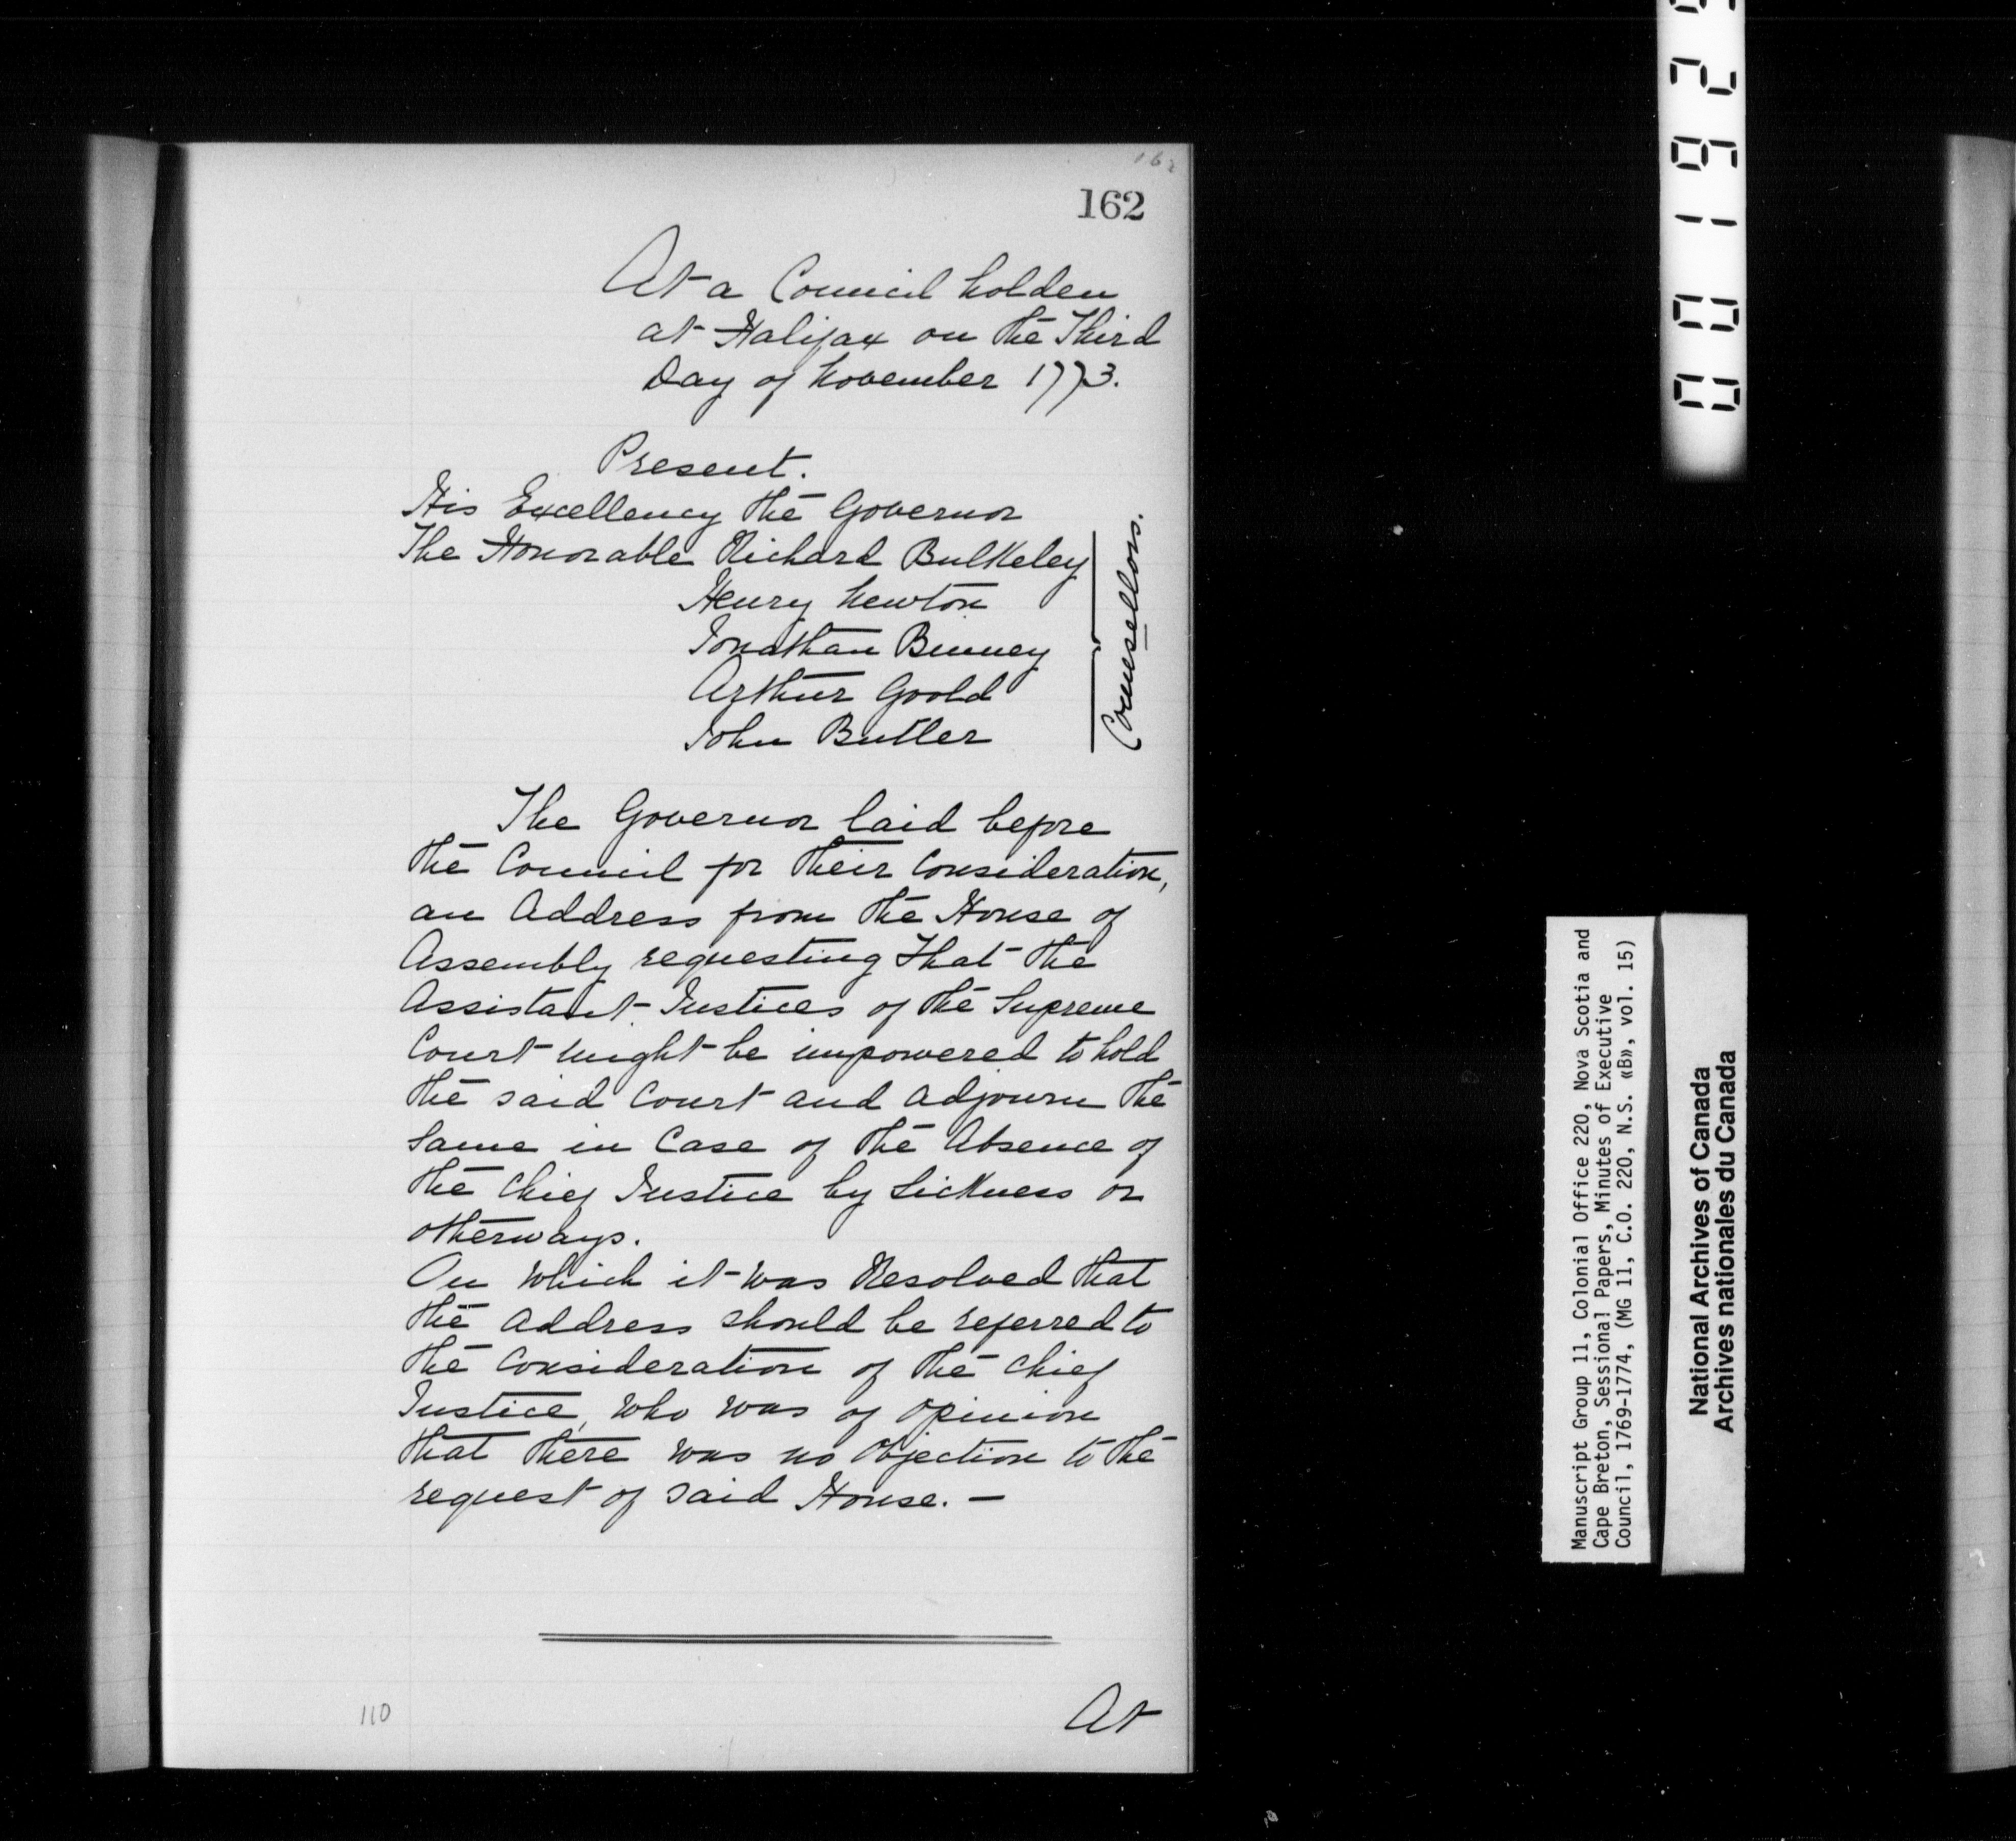 162
At a Council holden
at Halifax on the Third
Day of November 1773.
Present.
His Excellency the Governor
The Honorable Richard Bulkeley
Henry Newton
Jonathan Binney
Arthur Goold
John Butler
Counsellors.
The Governor laid before
the Council for their Consideration,
an Address from the House of
Assembly requesting That the
Assistant Justices of the Supreme
Court might be impowered to hold
the said Court and adjourn the
Same in Case of the Absence of
the Chief Justice by Sickness or
otherways.
On which it was Resolved that
the Address should be referred to
the Consideration of the Chief
Justice, who was of opinion
that there was no objection to the
request of said House. —
At
110
Manuscript Group 11, Colonial Office 220, Nova Scotia and
Cape Breton, Sessional Papers, Minutes of Executive
Council, 1769-1774, (MG 11, C.O. 220, N.S. «B», vol. 15)
National Archives of Canada
Archives nationales du Canada